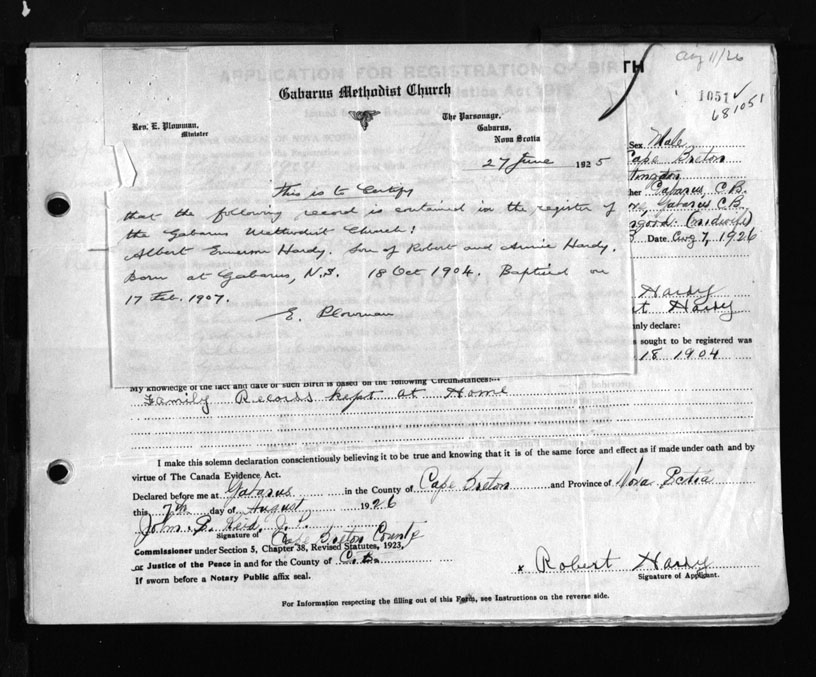 APPLICATION FOR REGISTRATION OF BIRTH
Aug 11/26
1051
681051
Gabarus Methodist Church
Rev. E. Plowman,
Minister
The Parsonage,
Gabarus,
Nova Scotia
27 June 1925
This is to Certify
that the following record is contained in the register of
the Gabarus Methodist Church:
Albert Emerson Hardy. Son of Robert and Annie Hardy.
Born at Gabarus, N.S. 18 Oct 1904. Baptised on
17 Feb. 1907.
E. Plowman
Sex Male
Cape Breton
her Gabarus, C.B.
Gabarus C.B.
Date Aug 7, 1926
Hardy
Hardy
nly declare:
sought to be registered was
18 1904
My knowledge of the fact and date of such Birth is based on the following Circumstances:
Family Records kept at Home
I make this solemn declaration conscientiously believing it to be true and knowing that it is of the same force and effect as if made under oath and by
virtue of The Canada Evidence Act.
Declared before me at Gabarus in the County of Cape Breton and Province of Nova Scotia
this 7th day of August 1926
John S. Reid J.P.
Signature of Cape Breton County
Commissioner under Section 3, Chapter 38, Revised Statutes, 1923,
or Justice of the Peace in and for the County of C.B.
If sworn before a Notary Public affix seal.
x Robert Hardy
Signature of Applicant.
For Information respecting the filling out of this Form, see Instructions on the reverse side.